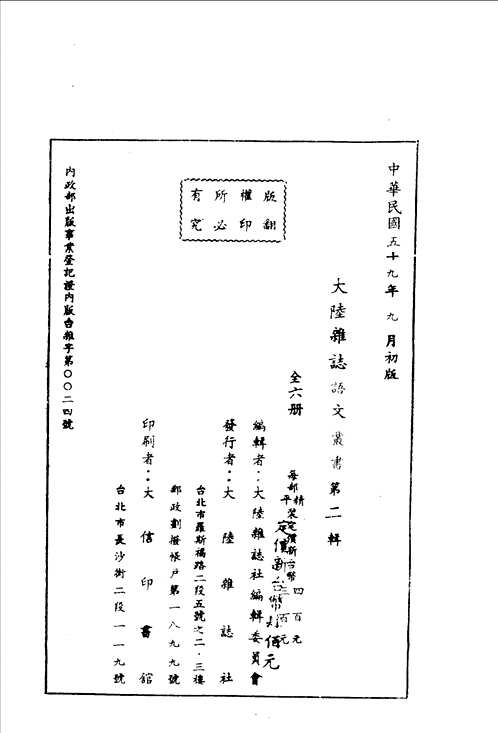 中華民國五十九年九月初版
大陸雜誌語文叢書第二輯
全六册
每部精裝定價新台幣四百元
平三百元
定價新台幣 佰元
編輯者：大陸雜誌社編輯委員會
發行者：大陸雜誌社
台北市羅斯福路二段五號之二·三樓
郵政劃撥帳戶第一八九九號
印刷者：大信印書館
台北市長沙街二段一一九號
版權所有
翻印必究
內政部出版事業登記證內版台雜字第〇〇二四號